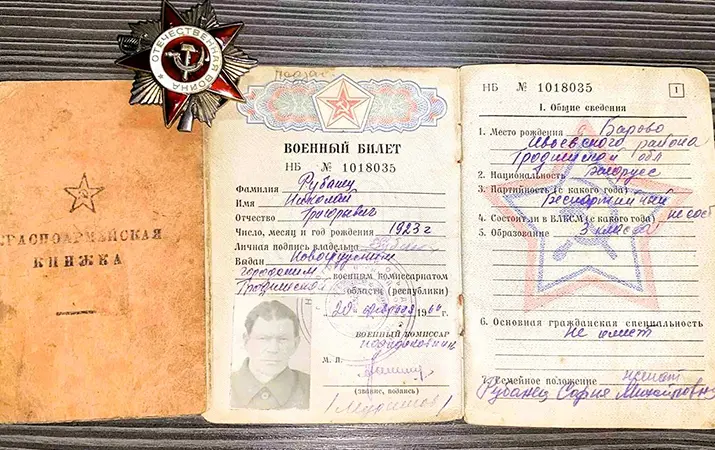 ОТЕЧЕСТВЕННАЯ ВОЙНА
КРАСНОАРМЕЙСКАЯ
КНИЖКА
ВОЕННЫЙ БИЛЕТ
НБ № 1018035
Фамилия Рубанец
Имя Николай
Отчество Григорьевич
Число, месяц и год рождения 1923 г
Личная подпись владельца
Выдан Новогрудским
городским военным комиссариатом
Гродненской области (республики)
20 февраля 19
ВОЕННЫЙ КОМИССАР
подполковник
М. П.
(звание, подпись)
НБ № 1018035
1
I. Общие сведения
1. Место рождения с Барово
Ивьевского района
Гродненской обл
2. Национальность Белорус
3. Партийность (с какого года)
Беспартийный
4. Состоит ли в ВЛКСМ (с какого года) не сост
5. Образование 3 класса
6. Основная гражданская специальность
не имеет
7. Семейное положение женат
Рубанец Софья Михайловна